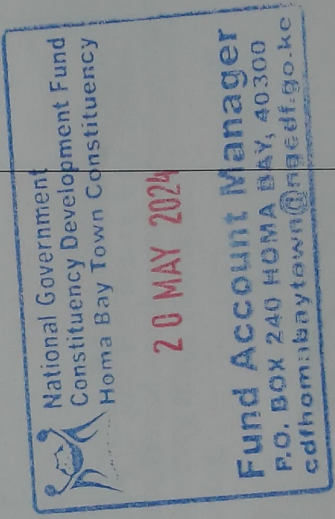 National Government
Constituency Development Fund
Homa Bay Town Constituency
20 MAY 2024
Fund Account Manager
P.O. BOX 240 HOMA BAY, 40300
cdfhomabaytown@ngcdf.go.ke